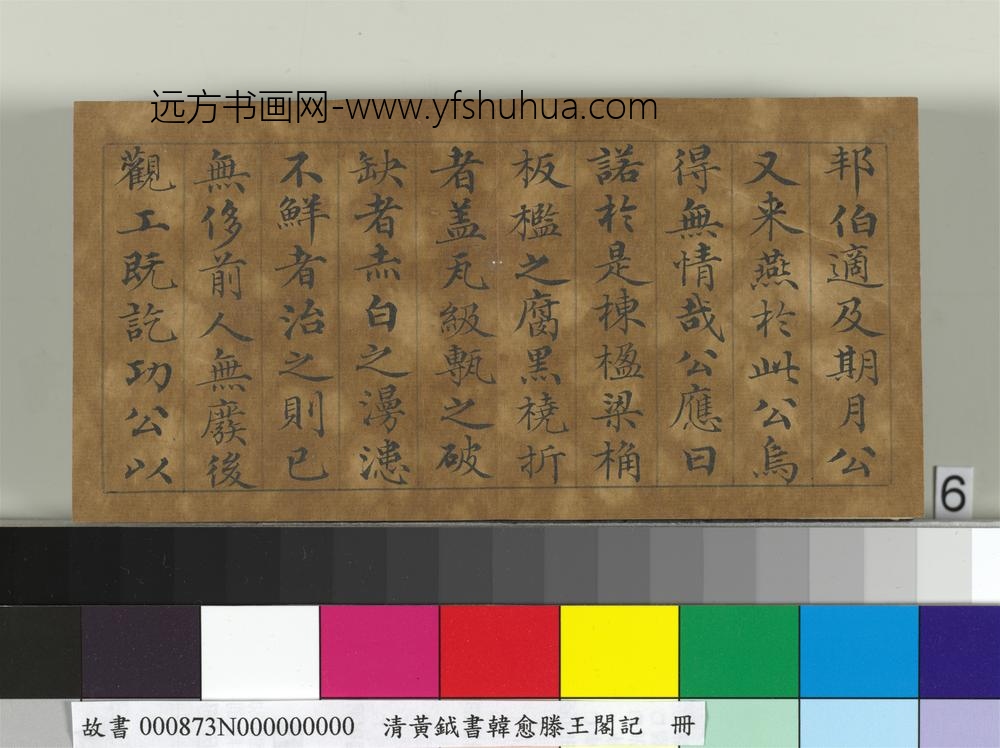 远方书画网-www.yfshuhua.com
邦伯適及期月公
又来燕於此公烏
得無情哉公應曰
諾於是棟楹梁桷
板檻之腐黑橈折
者盖瓦級甎之破
缺者赤白之漫漶
不鮮者治之則已
無侈前人無廢後
觀工既訖功公以
6
故書 000873N000000000 清黃鉞書韓愈滕王閣記 冊